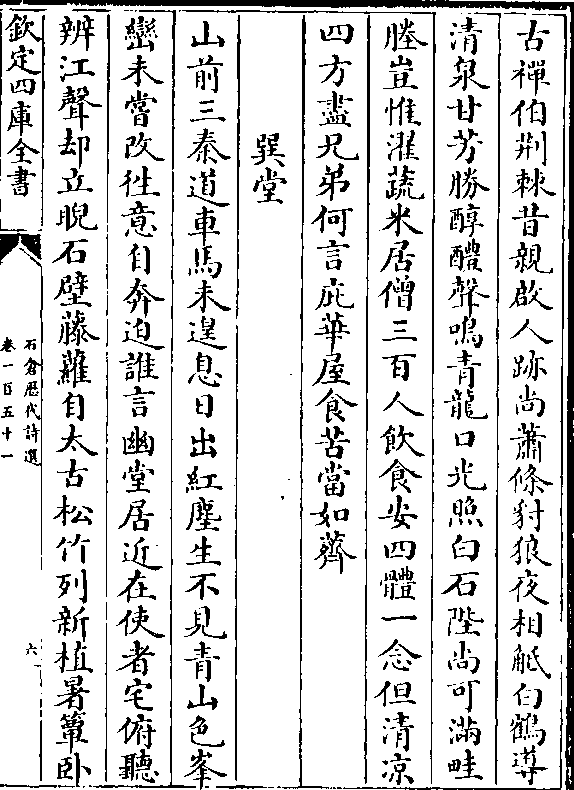 古禪伯荆棘昔親啟人跡尚蕭條豺狼夜相觝白鶴導
清泉甘芳勝醇醴聲鳴青龍口光照白石陛尚可滿畦
塍豈惟濯蔬米居僧三百人飲食安四體一念但清凉
四方盡兄弟何言庇華屋食苦當如薺
巽堂
山前三秦道車馬未遑息日出紅塵生不見青山色峯
巒未嘗改徃意自奔迫誰言幽堂居近在使者宅俯聽
辨江聲却立睨石壁藤蘿自太古松竹列新植暑簟卧
欽定四庫全書
石倉歴代詩選
卷一百五十一
六